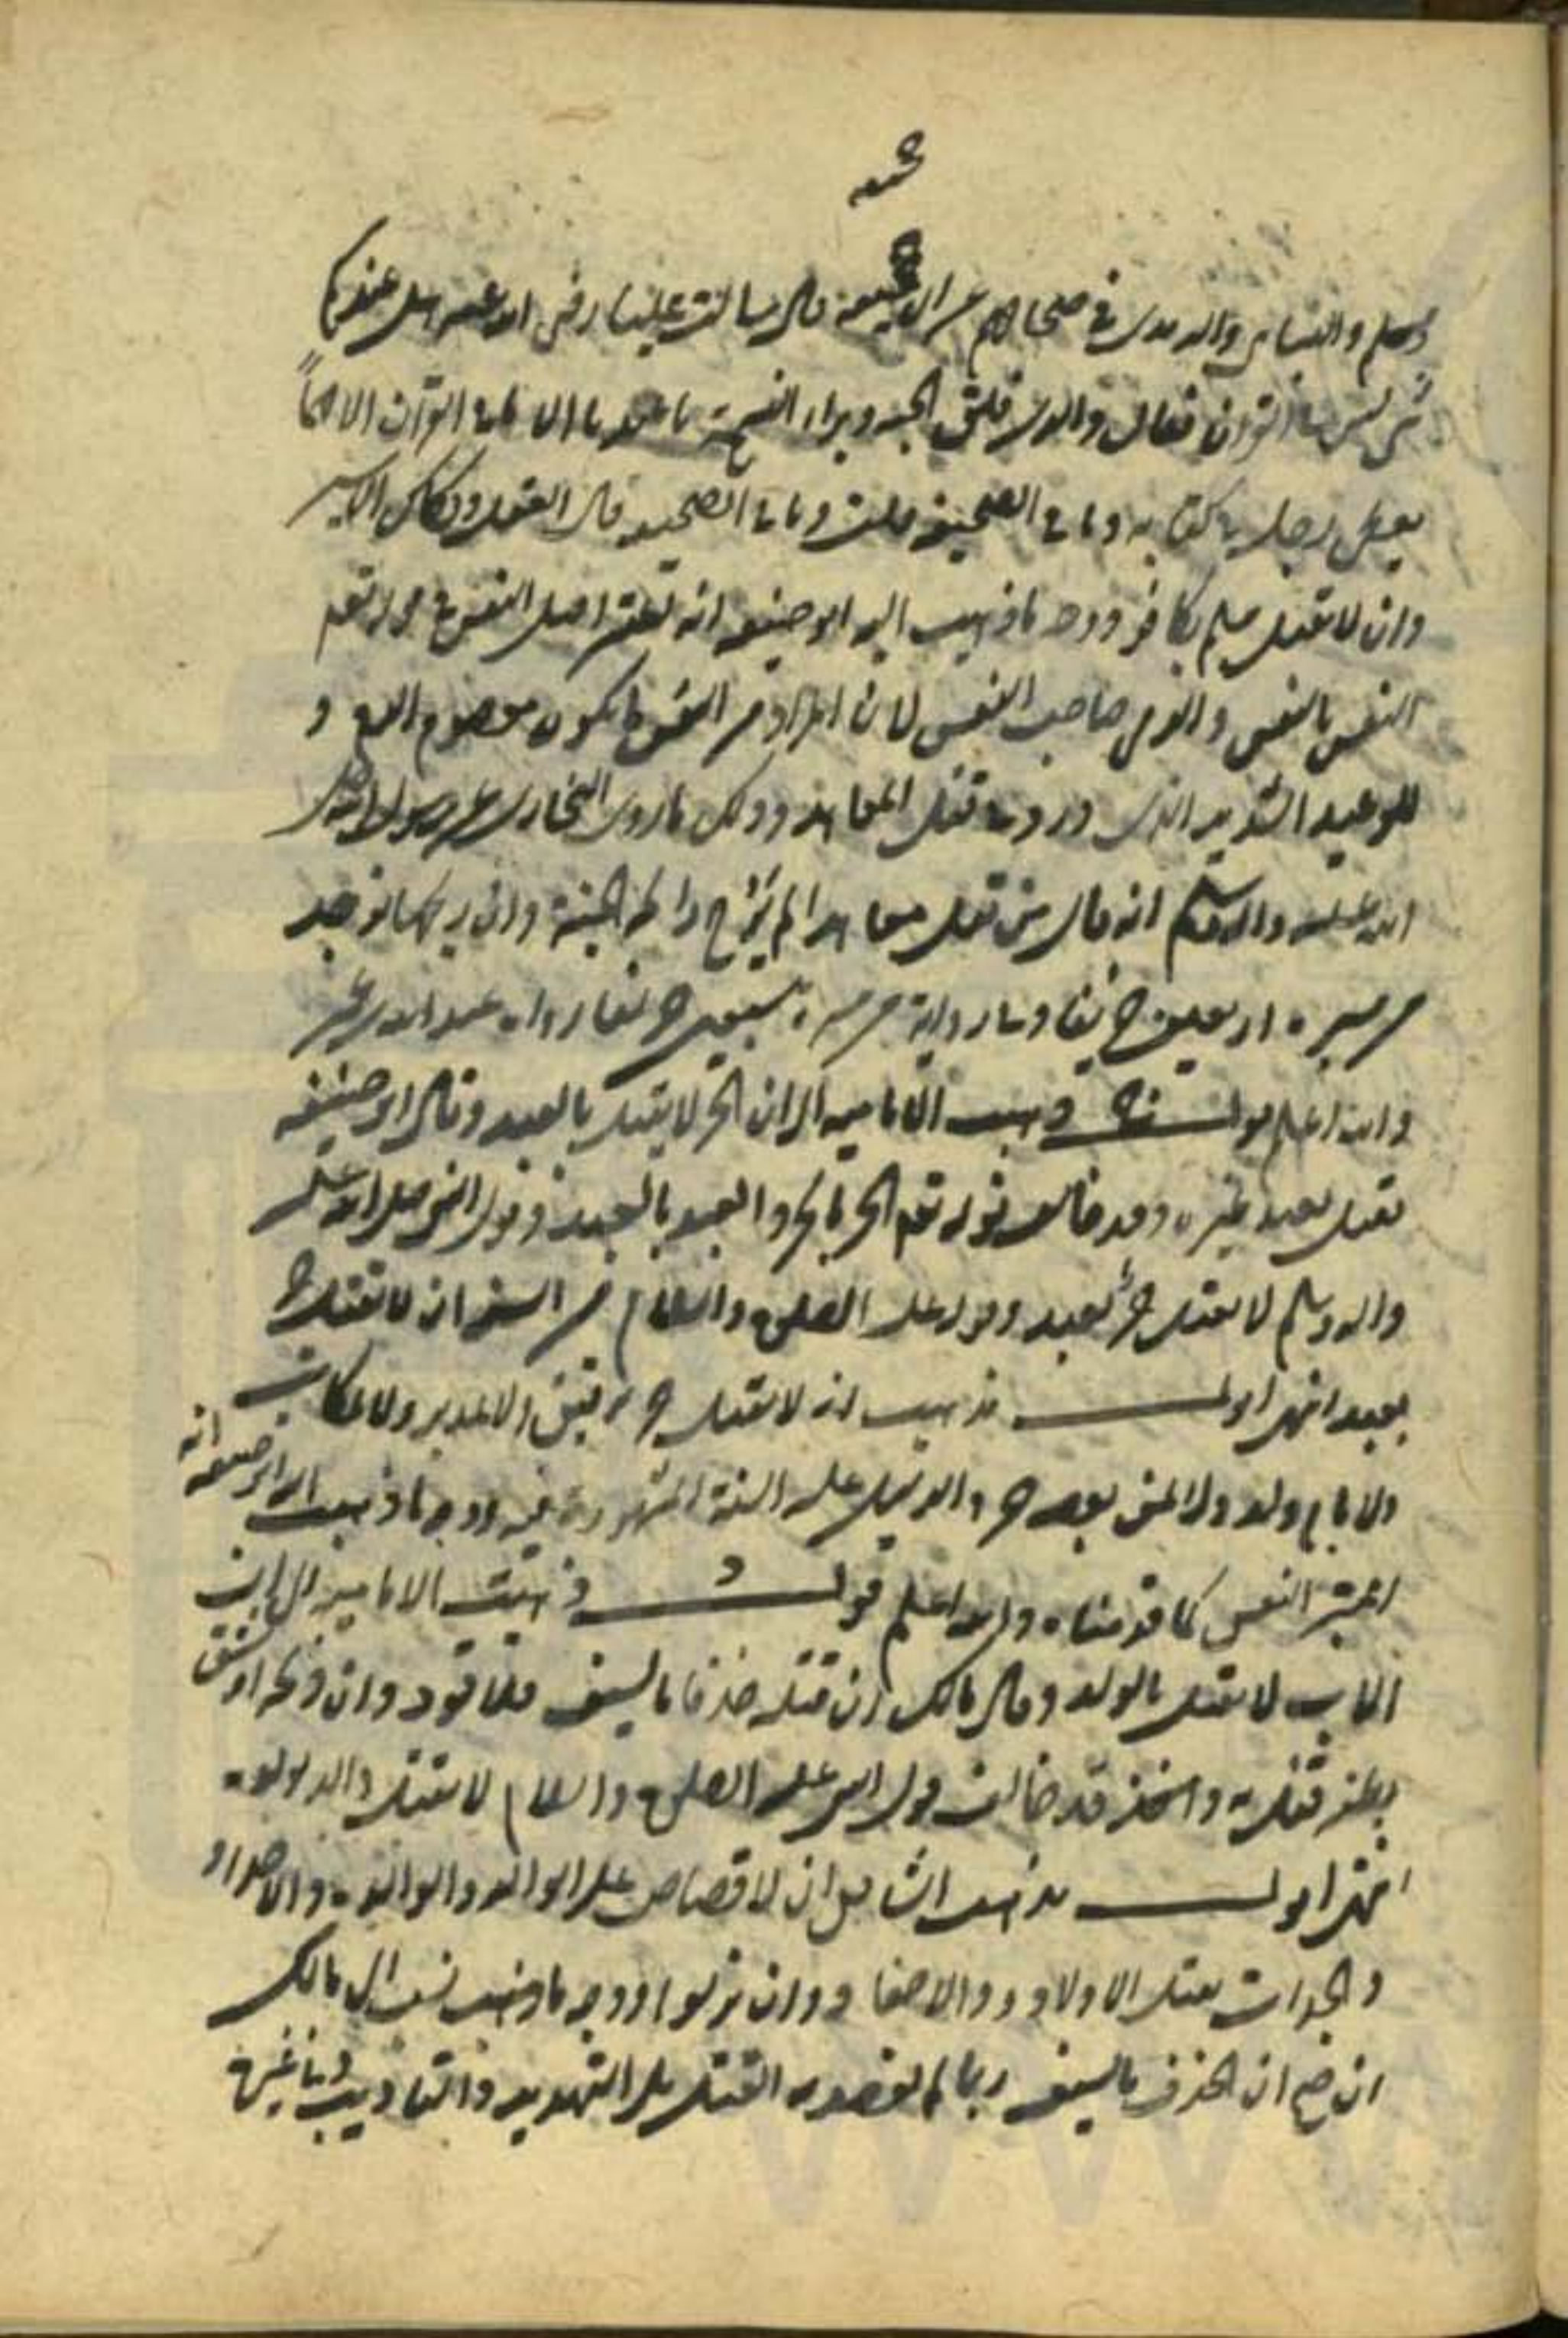 جحيفة
ومسلم والنسائي والترمذي في صحاحهم عن ابي جحيفة قال سالت عليا رضي الله عنه هل عندكم
شي ليس في القران فقال والذي فلق الحبة وبرا النسمة ما عندنا الا ما في القران الا فهما
يعطى رجل في كتابه وما في الصحيفة قلت وما في الصحيفة قال العقل وفكاك الاسير
وان لا يقتل مسلم بكافر ووجه ما ذهب اليه ابو حنيفة انه تعلق اصل النفس في قوله تعم
النفس بالنفس والذمي صاحب النفس لان المراد من النفس ما يكون معصوم الدم و
للوعيد الشديد الذي ورد في قتل المعاهد وذلك ما روى البخاري عن رسول الله صلى
الله عليه واله وسلم انه قال من قتل معاهدا لم يرح رائحة الجنة وان ريحها توجد
من مسيرة اربعين خريفا وفي رواية من مسيرة سبعين خريفا رواه عبد الله بن عمر
والله اعلم قوله ج ذهبت الامامية الى ان الحر لا يقتل بالعبد وقال ابو حنيفة
يقتل بعبد غيره وقد خالف قوله تعم الحر بالحر والعبد بالعبد وقول النبي صلى الله عليه
واله وسلم لا يقتل حر بعبد وقول علي الصلوة والسلام من السنة ان لا يقتل حر
بعبد انتهى اقول مذهب انه لا يقتل حر برقيق ولا مدبر ولا مكاتب
ولا بام ولد ولا لمن بعضه حر والدليل عليه السنة المشهورة فيه ووجه ما ذهب اليه ابو حنيفة انه
اعتبر النفس كما قدمناه والله اعلم قوله د ذهبت الامامية الى ان
الاب لا يقتل بالولد وقال مالك ان قتله حذفا بالسيف فلا قود وان ذبحه او شق
بطنه قتل به واخذ قد خالف قول النبي عليه الصلوة والسلام لا يقتل والد بولده
انتهى اقول مذهب الشافعي ان لا قصاص على الوالد والوالدة والاجداد
والجدات بقتل الاولاد والاحفاد وان نزلوا ووجه ما ذهب نسب الى مالك
ان صح ان الحذف بالسيف ربما لم يقصد به القتل بل التهديد والتاديب